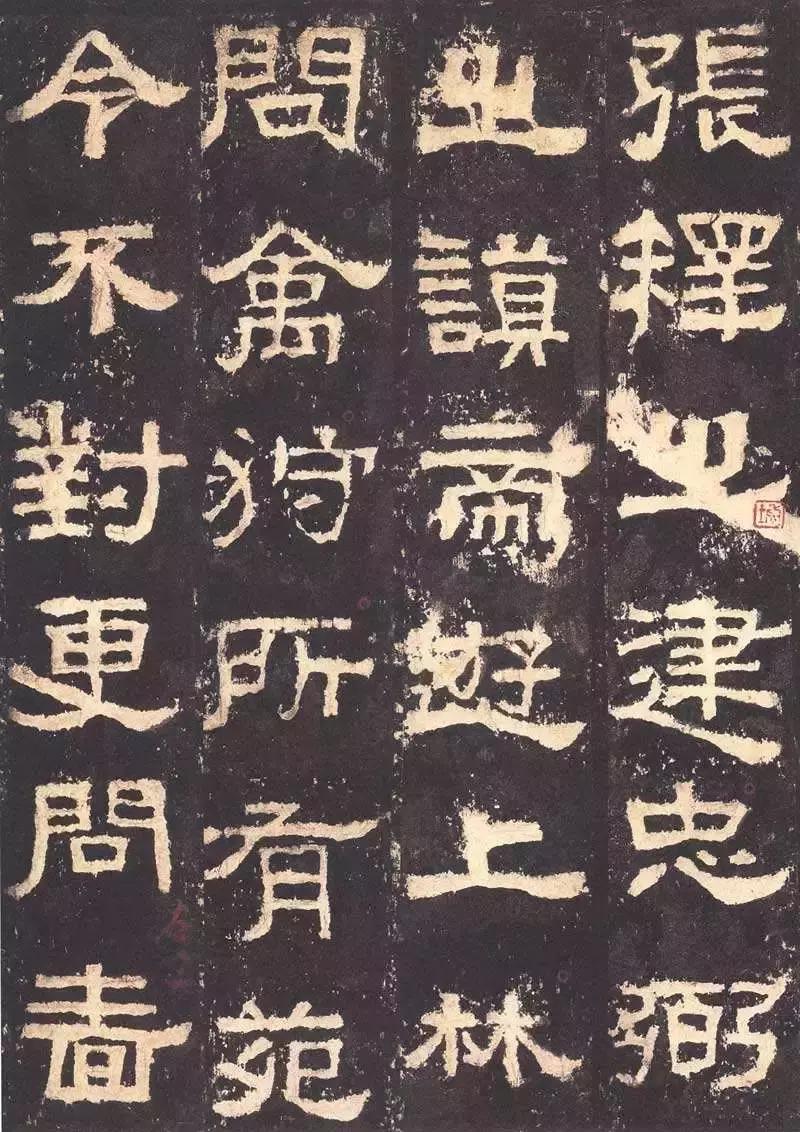 張釋之建忠弼
之謨帝遊上林
問禽狩所有苑
令不對更問嗇